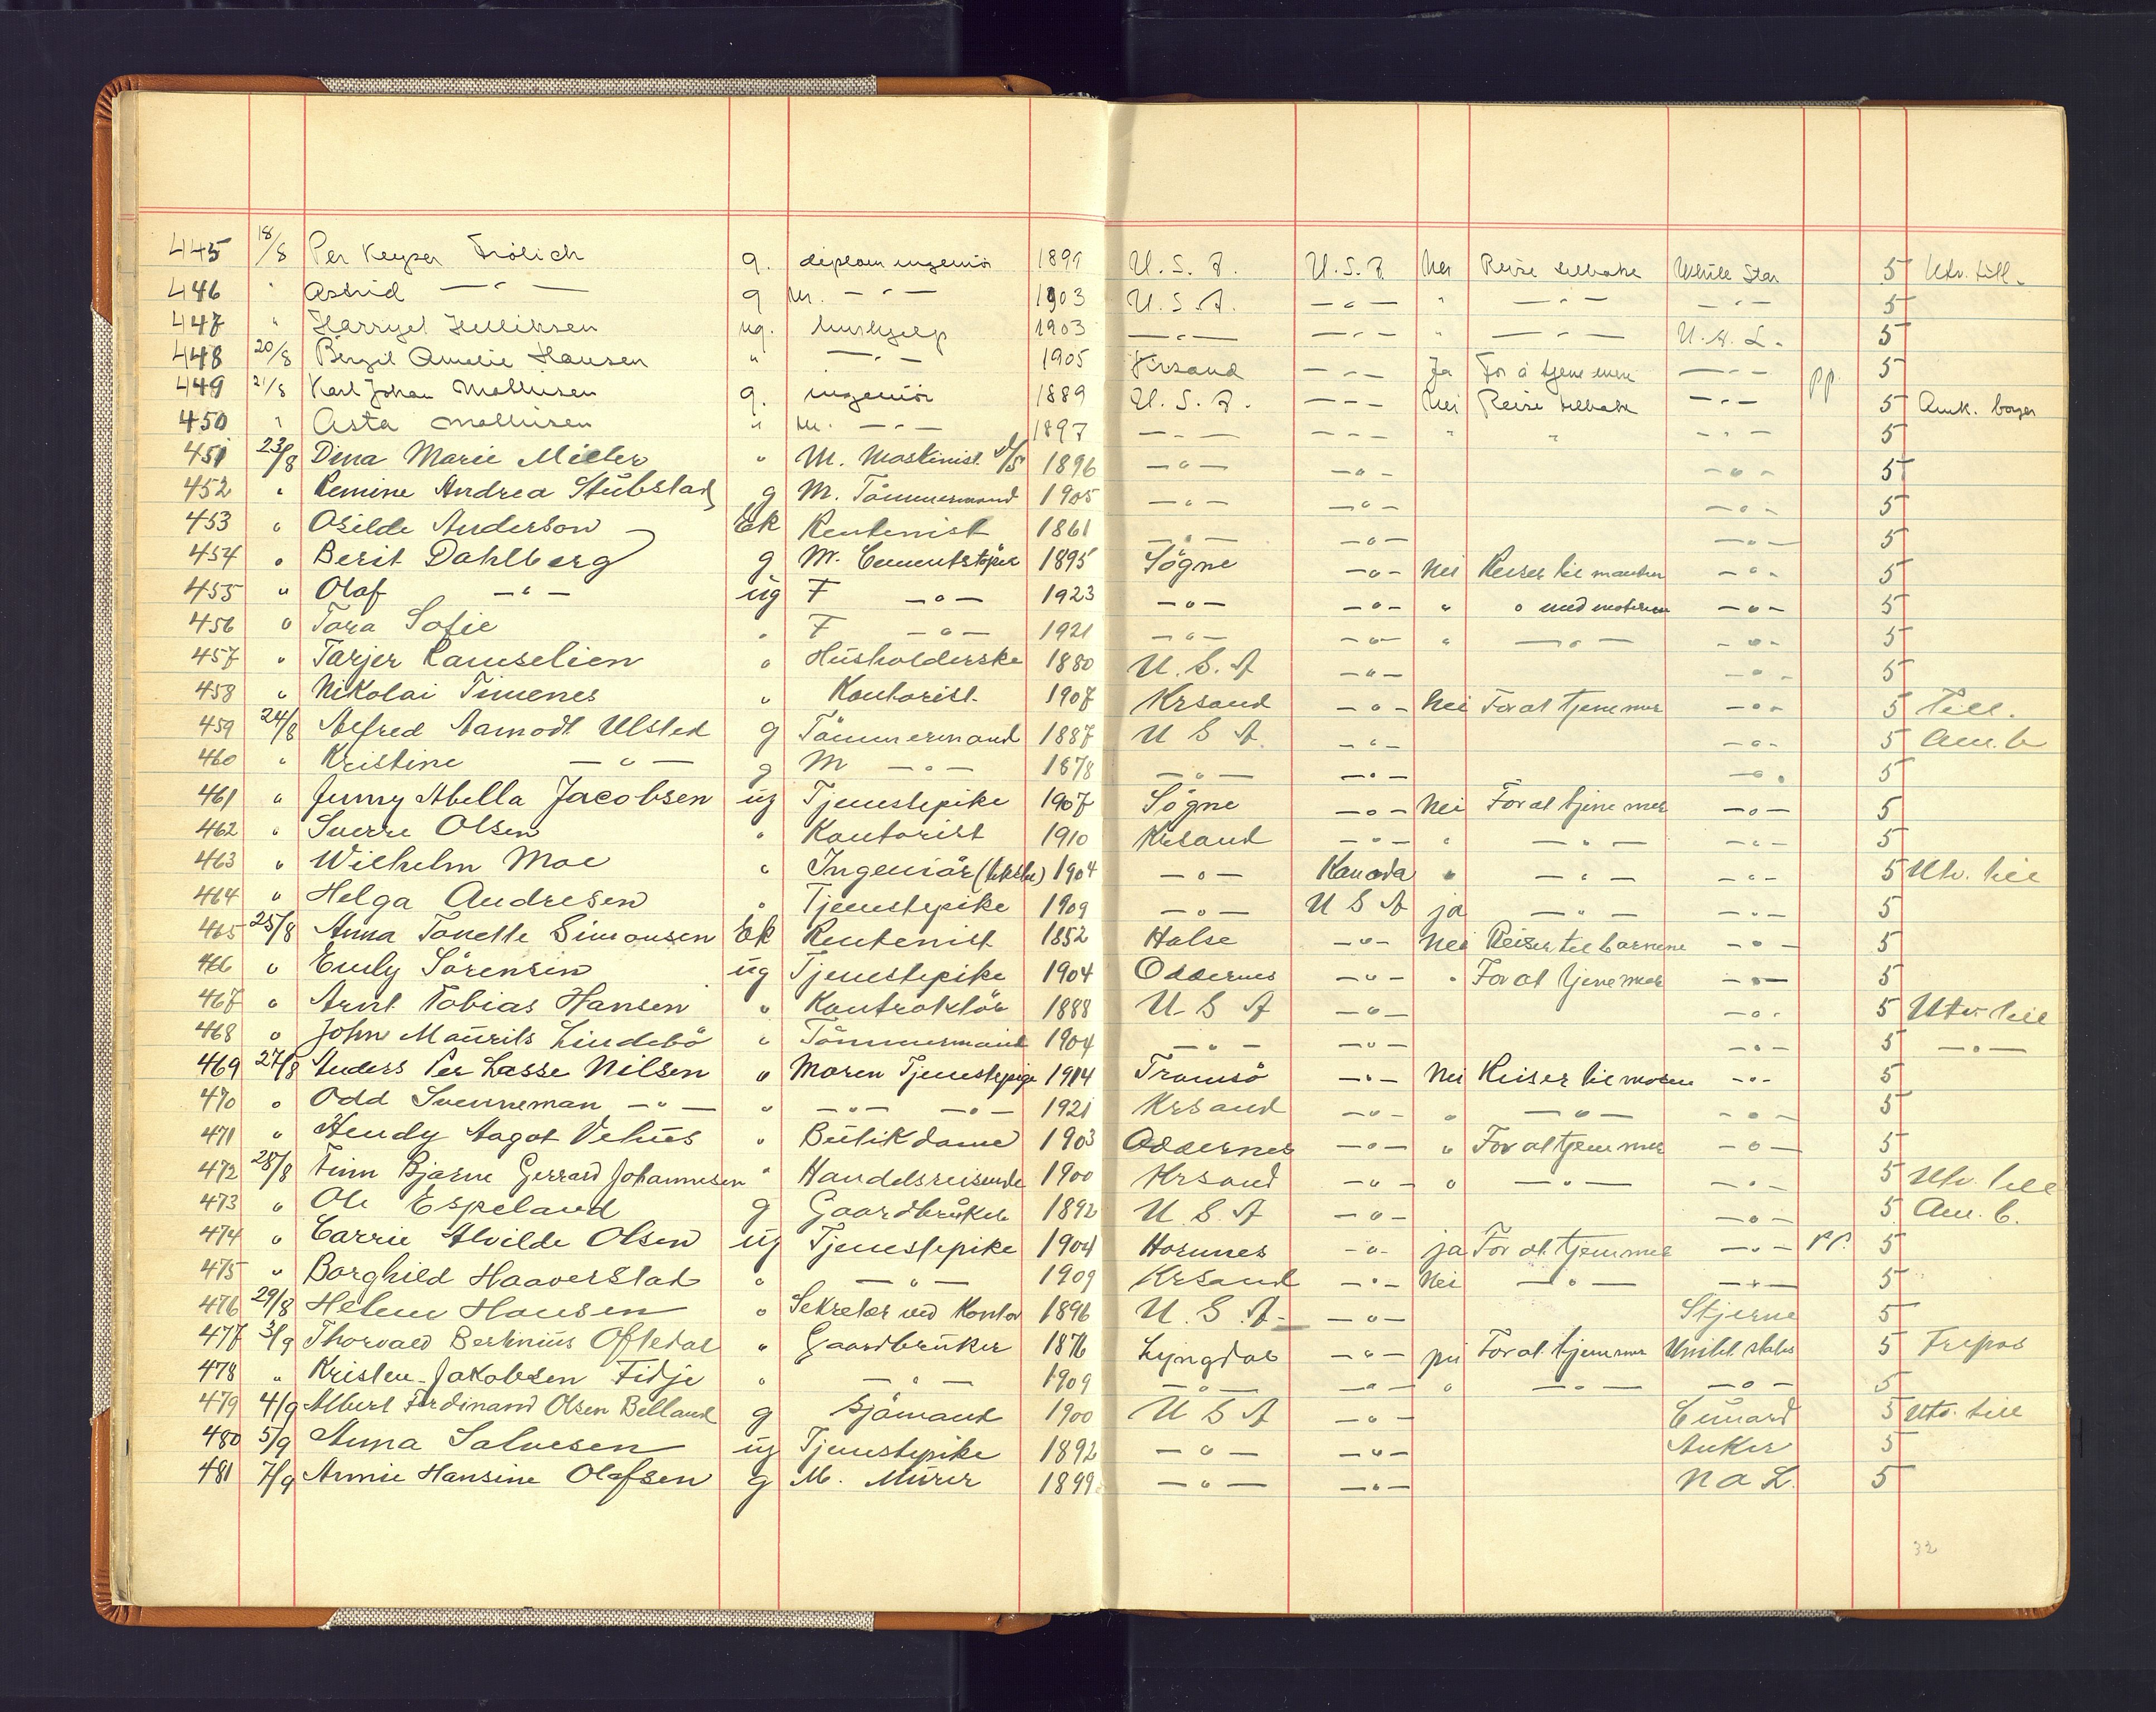 445 18/8 Per Keyser Frölich g. diplom ingeniör 1899 U.S.A. U.S.A. Nei Reise tilbake White Star 5 Utv. till.
446 " Astrid —"— g M. —"— 1903 U.S.A. —"— " —"— —"— 5
447 " Harryet Helliksen ug. hushjelp 1903 —"— —"— " —"— U.S.L. 5
448 20/8 Bergit Amelie Hansen " —"— 1905 Krsand —"— Ja For å tjene mere —"— 5
449 21/8 Karl Johan Mathisen g. ingeniör 1889 U.S.A. —"— Nei Reise tilbake —"— pp. 5 Amk. borger
450 " Asta Mathisen " M. —"— 1897 —"— —"— " " —"— 5
451 23/8 Dina Marie Miller " M. Maskinist d/s 1896 —"— —"— —"— 5
452 " Remine Andrea Stubstad g M. Tömmermand 1905 —"— —"— —"— 5
453 " Osilde Anderson Ek Rentenist 1861 —"— —"— —"— 5
454 " Berit Dahlberg g M. Cementstöper 1895 Sögne —"— Nei Reiser til manden —"— 5
455 " Olaf —"— ug F —"— 1923 —"— —"— " " med moderen —"— 5
456 " Tora Sofie " F —"— 1921 —"— —"— " —"— —"— 5
457 " Tarjer Ramselien " Husholderske 1880 U.S.A —"— —"— 5
458 " Nikolai Timenes " Kontorist 1907 Krsand —"— Nei For at tjene mer —"— 5 Till.
459 24/8 Alfred Aamodt Ulsted g Tömmermand 1887 U S A. —"— —"— 5 Am. b
460 " Kristine —"— g M —"— 1878 —"— —"— —"— 5
461 " Jenny Abella Jacobsen ug Tjenestepike 1907 Sögne —"— Nei For at tjene mer —"— 5
462 " Sverre Olsen " Kontorist 1910 Krsand —"— " —"— —"— 5
463 " Wilhelm Moe " Ingeniör 1904 —"— Kanada " —"— —"— 5 Utv. till
464 " Helga Andresen " Tjenestepike 1909 —"— U S A ja —"— —"— 5
465 25/8 Anna Tonette Simonsen Ek Rentenist 1852 Halse —"— Nei Reiser til barnene —"— 5
466 " Emly Sörensen ug Tjenestepike 1904 Oddernes —"— " For at tjene mer —"— 5
467 " Arnt Tobias Hansen " Kontraktör 1888 U S A —"— —"— 5 Utv till
468 " John Maurits Lindebö " Tömmermand 1904 —"— —"— —"— 5 —"—
469 27/8 Anders Per Lasse Nilsen " Moren Tjenestepige 1914 Tromsö —"— Nei Reiser til moren —"— 5
470 " Odd Svenneman —"— " —"— —"— 1921 Krsand —"— " —"— —"— 5
471 " Hendy Aagot Vehus " Butikdame 1903 Oddernes —"— " For at tjene mer —"— 5
472 28/8 Finn Bjarne Gerrard Johannesen " Handelsreisende 1900 Krsand —"— " —"— —"— 5 Utv. till
473 " Ole Espeland g Gaardbruker 1892 U.S.A —"— —"— 5 Am. b.
474 " Carrie Alvilde Olsen ug Tjenestepike 1904 Hornnes —"— ja For at tjene mer —"— pp. 5
475 " Borghild Haaverstad " —"— 1909 Krsand —"— Nei —"— —"— 5
476 29/8 Helene Hansen " Sekretær ved Kontor 1896 U.S.A. —"— Stjerne 5
477 3/9 Thorvald Bertinius Oftedal " Gaardbruker 1876 Lyngdal —"— nei For at tjene mer United states 5 Fripas
478 " Kristen Jakobsen Fidje " —"— 1909 —"— —"— " —"— —"— 5
479 4/9 Albert Ferdinand Olsen Belland g Sjömand 1900 U S A —"— Cunard 5 Utv. till
480 5/9 Anna Salvesen ug Tjenestepike 1892 —"— —"— Anker 5
481 7/9 Annie Hansine Olafsen g M. Murer 1899 —"— —"— N a L. 5
32